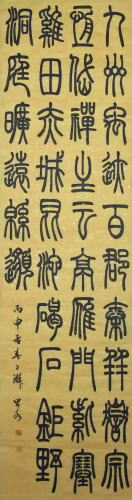 九州禹迹百郡秦并嶽宗
恆岱禪主云亭雁門紫塞
雞田赤城昆池碣石鉅野
洞庭曠遠緜邈
丙申